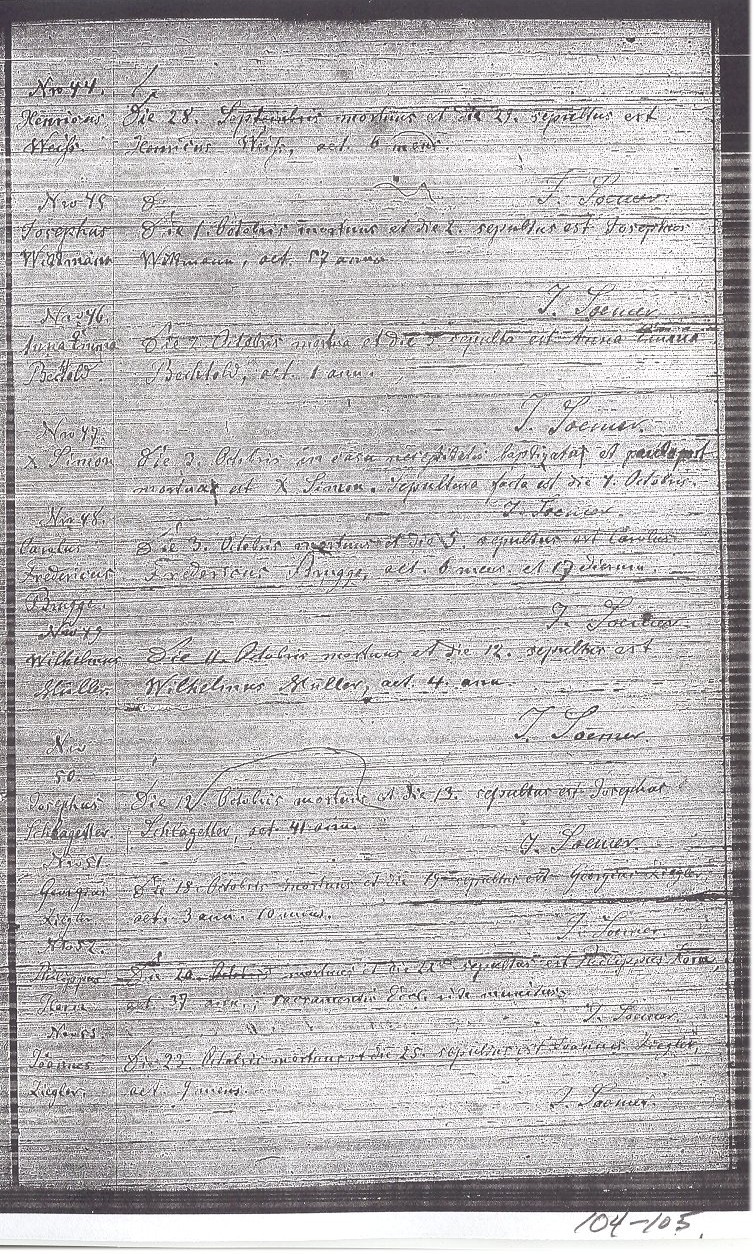 Nro 44.
Henricus Die 28. Septembris mortuus et die 29. sepultus est
Weiss. Henricus Weiss, aet. 6 mens.
J. Soemer.
Nro 45
Josephus Die 1. Octobris mortuus et die 2. sepultus est Josephus
Wittmann Wittmann, aet. 57 anno
J. Soemer
Nro 46.
Anna Emma Die 2. Octobris mortua et die 3 sepulta est Anna Emma
Bechtold. Bechtold, aet. 1 ann.
J. Soemer.
Nro 47.
X Simon Die 3. Octobris in casu necessitatis baptizata et paulo post
mortua est X Simon. Sepultura facta est die 4. Octobris.
J. Soemer.
Nro 48.
Carolus Die 3. Octobris mortuus et die 5. sepultus est Carolus
Fredericus Fredericus Brügge, aet. 6 mens. et 17 dierum.
Brügge.
J. Soemer
Nro 49
Wilhelmus Die 11. Octobris mortuus et die 12. sepultus est
Müller. Wilhelmus Müller, aet. 4. ann.
J. Soemer.
Nro
50.
Josephus Die 12. Octobris mortuus et die 13. sepultus est Josephus
Schlageter. Schlageter, aet. 41 ann.
J. Soemer.
Nro 51
Georgius Die 18. Octobris mortuus et die 19 sepultus est Georgius Ziegler
Ziegler aet. 3 ann. 10 mens.
J. Soemer.
Nro 52.
Philippus Die 20. Octobris mortuus et die 22 sepultus est Philippus Horn,
Horn aet 37 ann., sacramentis Eccl. rite munitus.
J. Soemer.
Nro 53
Joannes Die 23. Octobris mortuus et die 25. sepultus est Joannes Ziegler,
Ziegler. aet. 9 mens.
J. Soemer.
104-105.